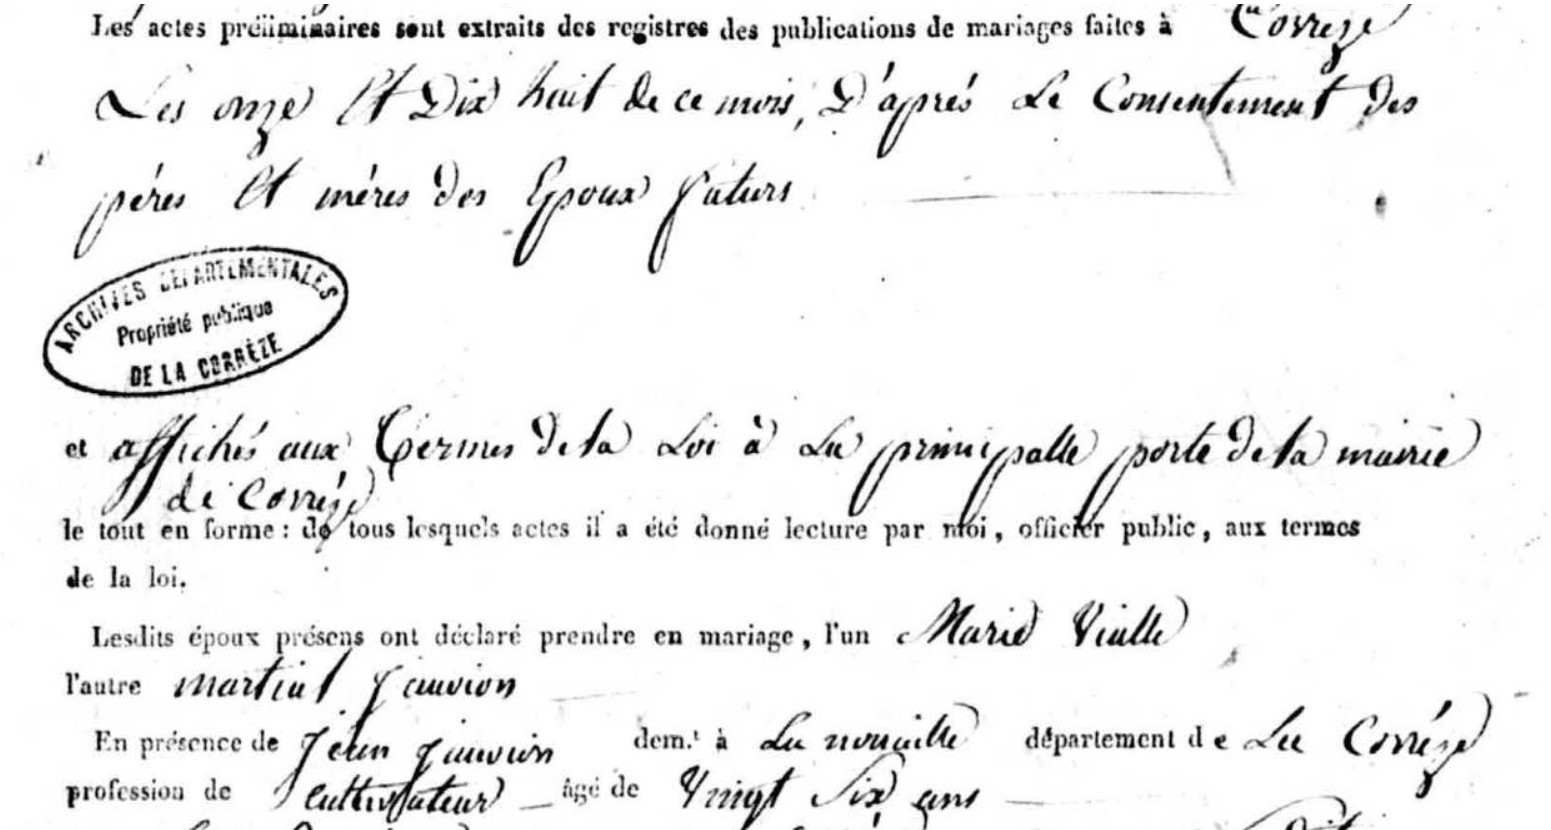 Les actes préliminaires sont extraits des registres des publications de mariages faites à Corrèze
Les onze Et Dix huit de ce mois, D'aprés Le Consentement des
péres Et méres des Epoux futurs
ARCHIVES DÉPARTEMENTALES
Propriété publique
DE LA CORRÈZE
et affichés aux Termes de la Loi à La principalle porte de la mairie
de Corréze
le tout en forme : de tous lesquels actes il a été donné lecture par moi, officier public, aux termes
de la loi.
Lesdits époux présens ont déclaré prendre en mariage, l'un Marie Vialle
l'autre martial Jauvion
En présence de Jean Jauvion dem.t à La nouaille département de La Corréze
profession de cultivateur âgé de Vingt Six ans